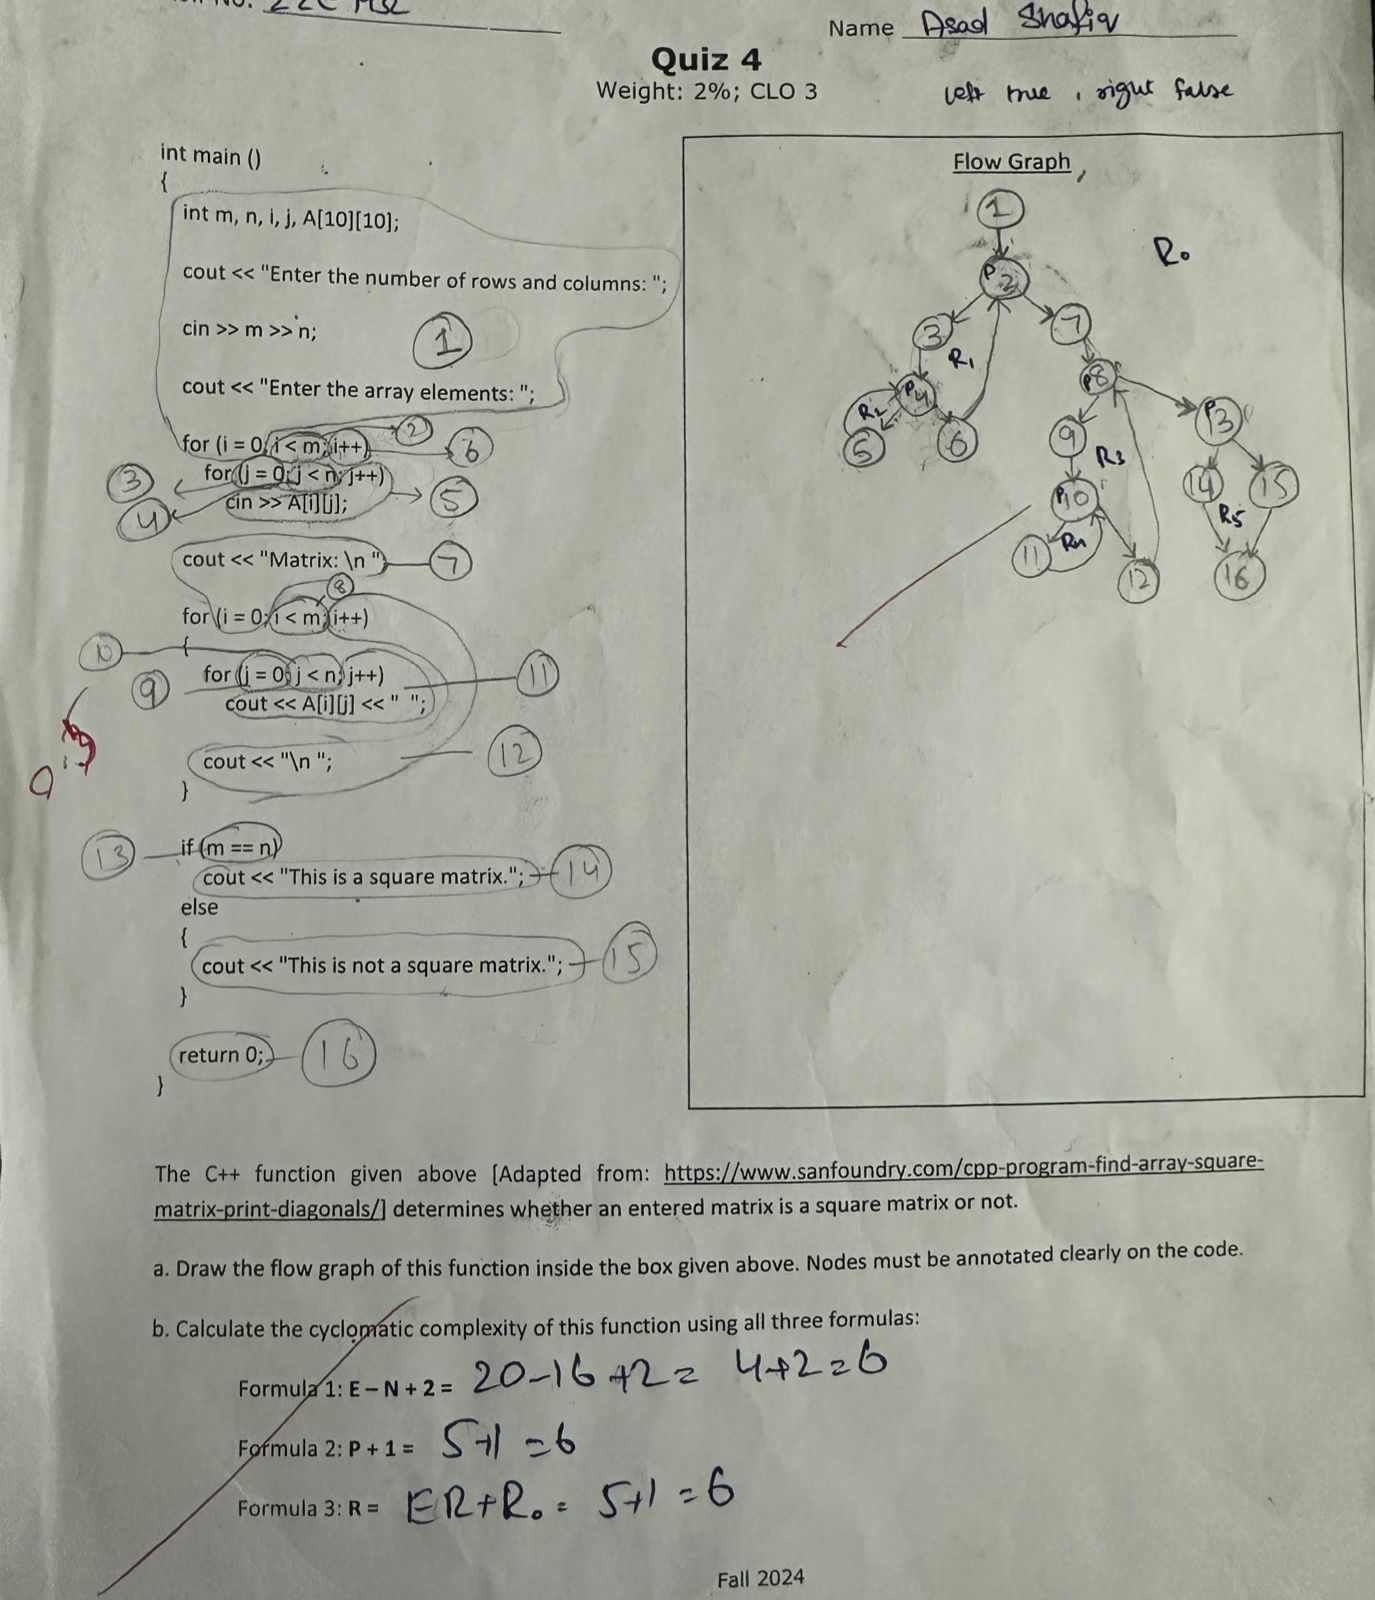 Name Asad Shafiq
Quiz 4
Weight: 2%; CLO 3
left true , right false
int main ()
{
int m, n, i, j, A[10][10];
cout << "Enter the number of rows and columns: ";
cin >> m >> n;
1
cout << "Enter the array elements: ";
for (i = 0; i < m; i++)
2
6
for (j = 0; j < n; j++)
3
cin >> A[i][j];
4
5
cout << "Matrix: \n ")
7
8
for (i = 0; i < m; i++)
{
10
for (j = 0; j < n; j++)
11
9
cout << A[i][j] << " ";
cout << "\n ";
12
}
if (m == n)
13
cout << "This is a square matrix.";
14
else
{
cout << "This is not a square matrix.";
15
}
return 0;
16
}
Flow Graph
1
R0
P2
3
7
R1
P4
P8
R2
5
6
9
P13
R3
P10
14
15
R5
11
R4
12
16
The C++ function given above [Adapted from: https://www.sanfoundry.com/cpp-program-find-array-square-
matrix-print-diagonals/] determines whether an entered matrix is a square matrix or not.
a. Draw the flow graph of this function inside the box given above. Nodes must be annotated clearly on the code.
b. Calculate the cyclomatic complexity of this function using all three formulas:
Formula 1: E – N + 2 = 20-16+2= 4+2=6
Formula 2: P + 1 = 5+1 =6
Formula 3: R = ER+R0 = 5+1 =6
Fall 2024